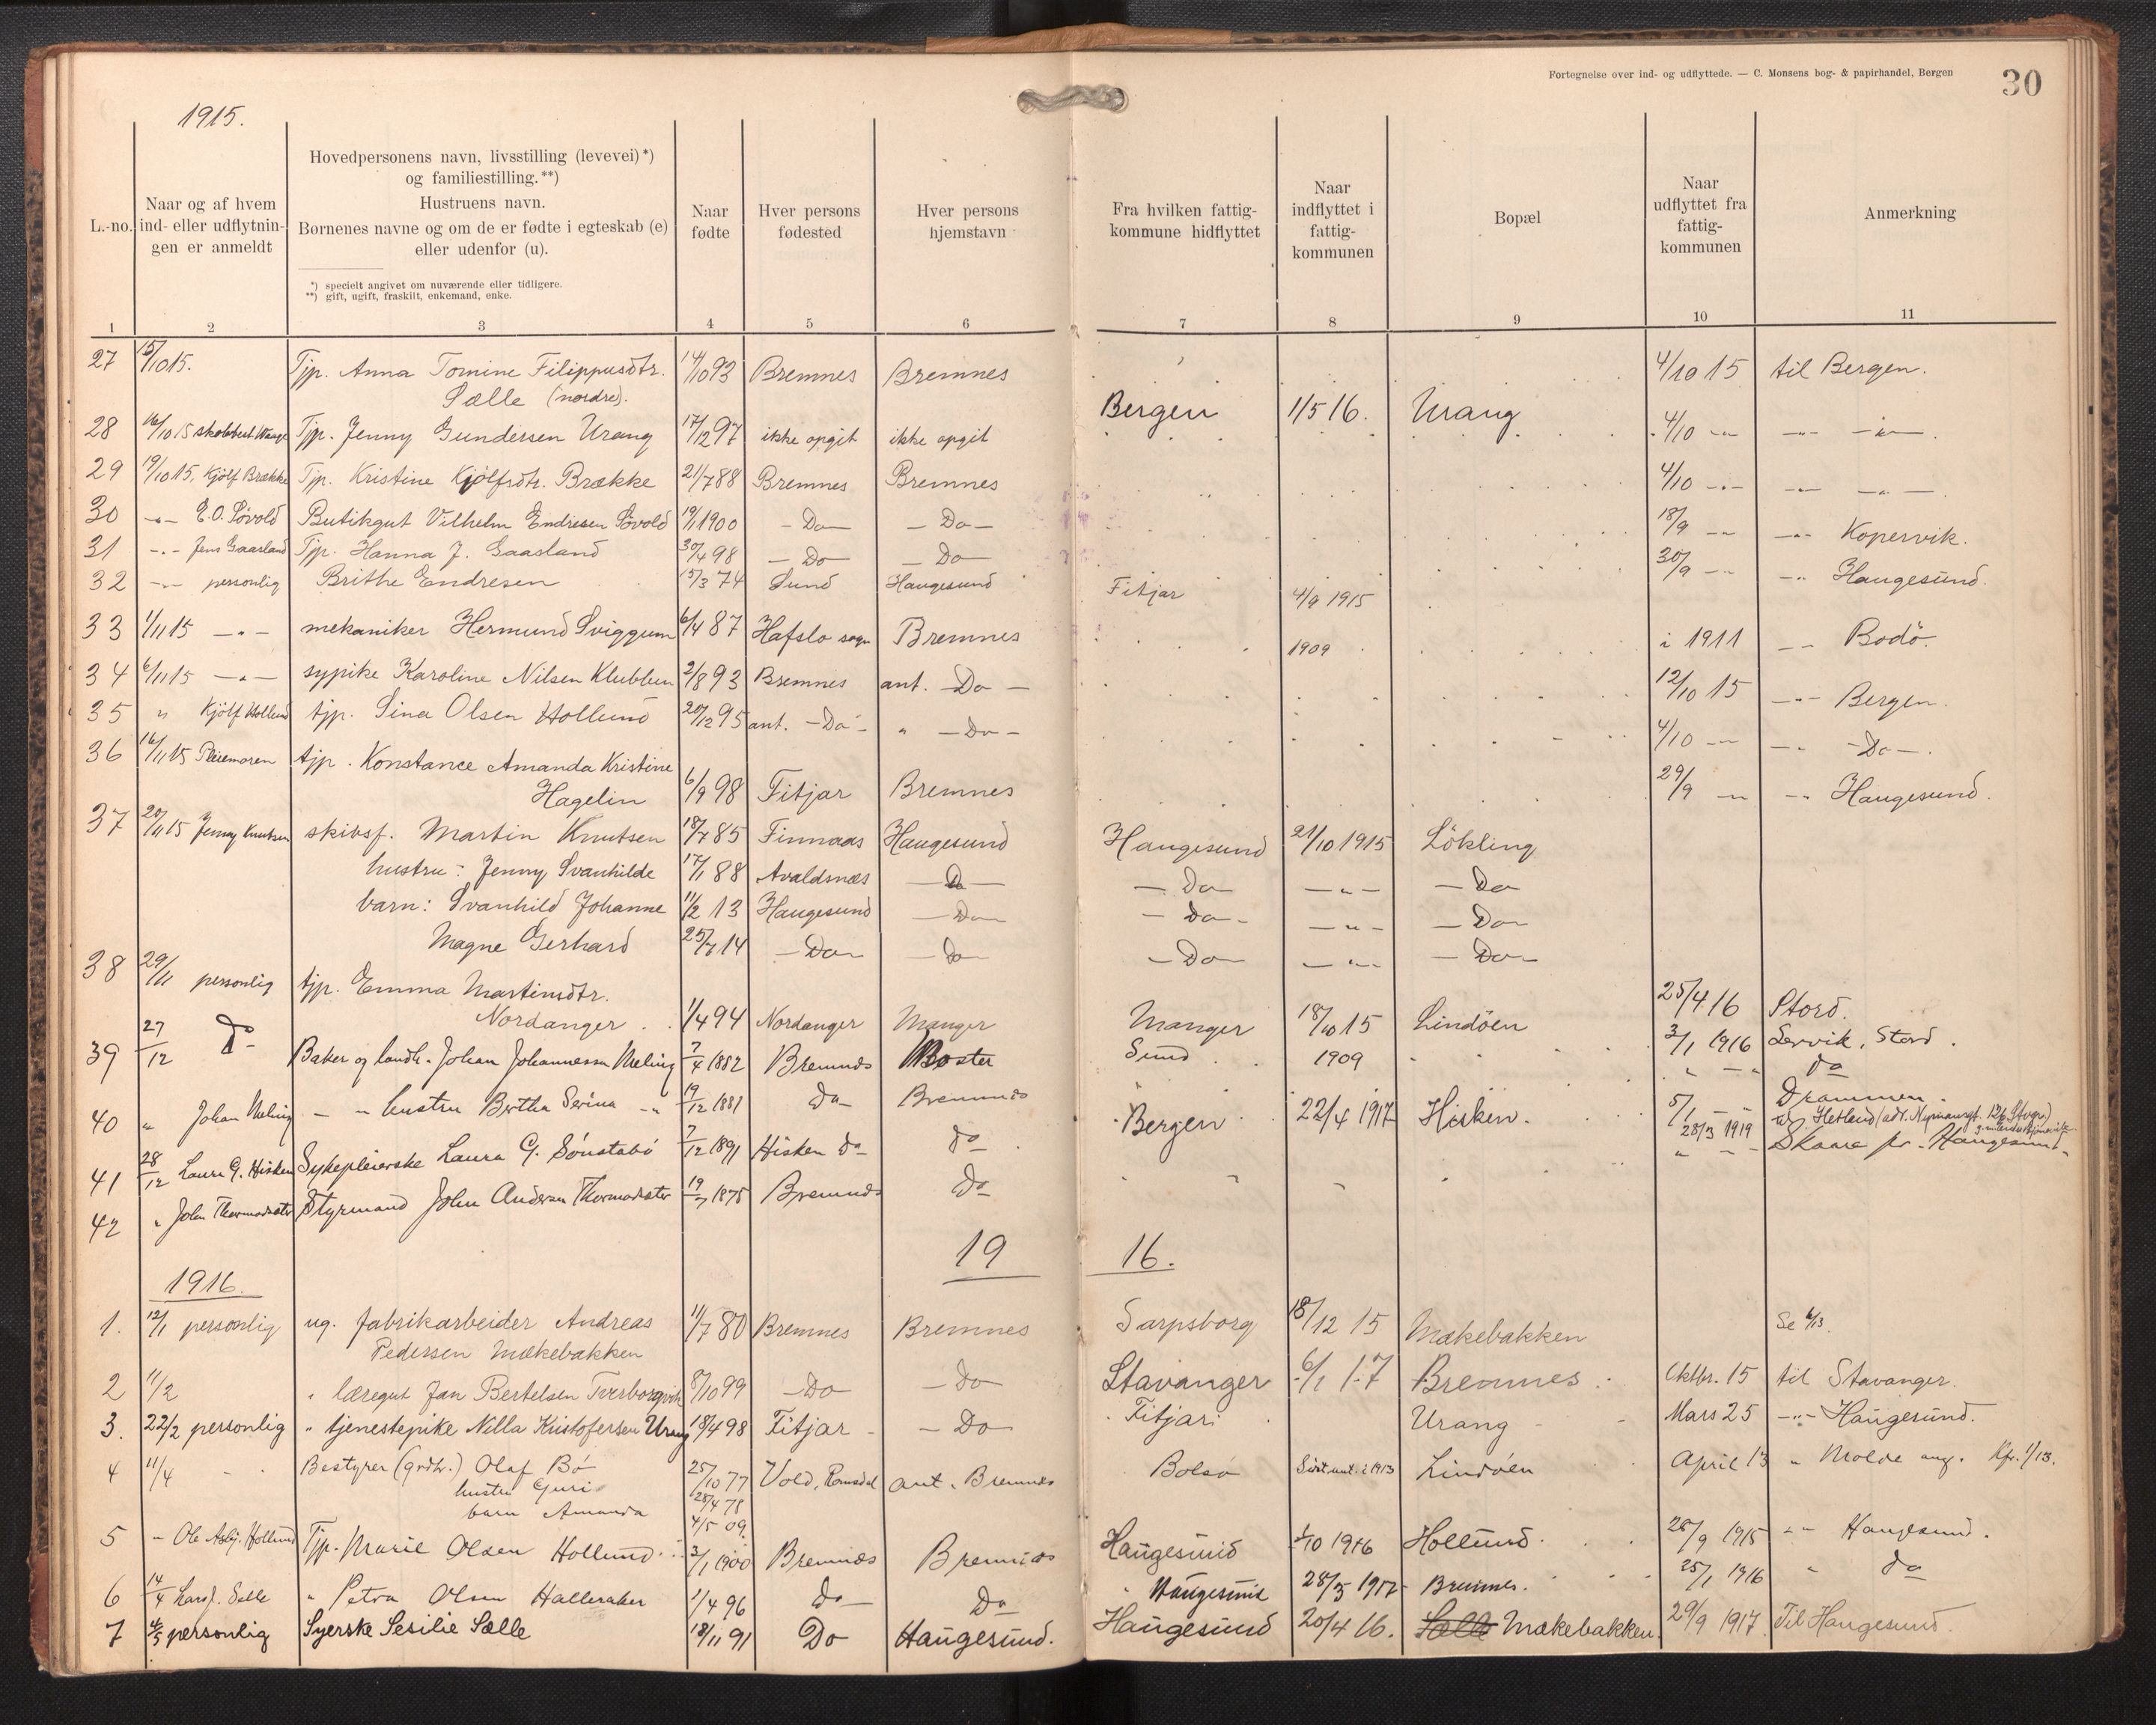 Fortegnelse over ind- og udflyttede. — C. Monsens bog- & papirhandel, Bergen
30
1915.
L.-no.
Naar og af hvem ind- eller udflytningen er anmeldt
Hovedpersonens navn, livsstilling (levevei) *) og familiestilling. **)
Hustruens navn.
Børnenes navne og om de er fødte i egteskab (e) eller udenfor (u).
*) specielt angivet om nuværende eller tidligere.
**) gift, ugift, fraskilt, enkemand, enke.
Naar fødte
Hver persons fødested
Hver persons hjemstavn
Fra hvilken fattigkommune hidflyttet
Naar indflyttet i fattigkommunen
Bopæl
Naar udflyttet fra fattigkommunen
Anmerkning
1 2 3 4 5 6 7 8 9 10 11
27 15/10 15. Tjp. Anna Tomine Filippusdtr. 14/10 93 Bremnes Bremnes 4/10 15 til Bergen.
Sælle (nordre).
28 16/10 15 Tjp. Jenny Gundersen Urang 17/12 97 ikke opgit ikke opgit Bergen 1/5 16. Urang 4/10 -"- -"- -"-
29 19/10 15. Kjölf Brække Tjp. Kristine Kjölfsdtr. Brække 21/7 88 Bremnes Bremnes 4/10 -"- -"- -"-
30 -"- E.O. Sövold Butikgut Vilhelm Endresen Sövold 19/1 1900 - Do - - Do - 18/9 -"- -"- Kopervik.
31 -"- Jens Gaasland Tjp. Hanna J. Gaasland 30/4 98 - Do - - Do 30/9 -"- -"- Haugesund.
32 -"- personlig Brithe Endresen 15/3 74 Sund Haugesund Fitjar 4/9 1915
33 1/11 15 -"- mekaniker Hermund Sviggum 6/4 87 Hafslo sogn Bremnes 1909 i 1911 -"- Bodö.
34 6/11 15 -"- sypike Karoline Nilsen Klubben 2/8 93 Bremnes ant. - Do - 12/10 15 -"- Bergen.
35 " Kjölf Hollund tjp. Sina Olsen Hollund 20/12 95 ant. - Do - " - Do - 4/10 -"- -"- - Do -.
36 16/11 15 tjp. Konstance Amanda Kristine
Hagelin 6/9 98 Fitjar Bremnes 29/9 -"- -"- Haugesund.
37 20/11 15 Jenny Knutsen skibsf. Martin Knutsen 18/7 85 Finnaas Haugesund Haugesund 21/10 1915 Lökling
hustru: Jenny Svanhilde 17/1 88 Avaldsnes - Do - - Do - -"- - Do
barn: Svanhild Johanne 11/2 13 Haugesund - Do - - Do - -"- - Do -
Magne Gerhard 25/7 14 - Do - - Do - - Do - -"- - Do -
38 29/11 personlig tjp. Emma Martinsdtr.
Nordanger 1/4 94 Nordanger Manger Manger 18/10 15 Lindöen 25/4 16 Stord.
39 27/12 Do Baker og landh. Johan Johannessen Meling 7/4 1882 Bremnes Moster Sund 1909 3/1 1916 Lervik, Stord.
- " hustru Bertha Serina -" 19/12 1881 Do Bremnes " - " Do
40 " Johan Meling
41 28/12 Laura G. Hisken Sykepleierske Laura G. Sønstabø 7/12 1891 Hisken Do Do Bergen 22/4 1917 Hisken. 5/1 - " Drammen.
28/3 1919 til Hetland
42 " John Thormodsæter Styrmand John Andersen Thormodsæter 19/7 1875 Bremnes Do " - - Skaare pr. Haugesund.
19 16.
1916.
1. 12/1 personlig ug. fabrikarbeider Andreas 11/7 80 Bremnes Bremnes Sarpsborg 18/12 15 Mækebakken Se 6/13.
Pedersen Mækebakken
2 11/2 " læregut Jan Bertelsen Tverborgvik 8/10 99 - Do - Do Stavanger 6/1 17 Bremnes. Oktbr. 15 til Stavanger.
3. 22/2 personlig " tjenestepike Nilla Kristofersen Urang 18/4 98 Fitjar - Do Fitjar Urang Mars 25 -"- Haugesund.
4 11/4 Bestyrer (grdbr.) Olaf Bø 25/10 77 Vold, Romsdal ant. Bremnes Bolsø Sidst ant. i 1913 Lindöen April 13 " Molde ang. Kfr. 1/13.
hustru Guri 28/4 78
barn Amanda 4/5 09.
5 - Ole Asbj. Hollund Tjp. Marie Olsen Hollund 3/1 1900 Bremnes Bremnes Haugesund 1/10 1916 Hollund. 28/9 1915 -"- Haugesund.
6 14/4 Lars J. Selle " Petra Olsen Halleraker 1/4 96 Do Do Haugesund 28/3 1917 Bremnes. 25/1 1916 " Do
7 4/5 personlig Syerske Sesilie Sælle 18/11 91 Do Haugesund. Haugesund 20/4 16. Sælle Mækebakken. 29/9 1917 Til Haugesund.